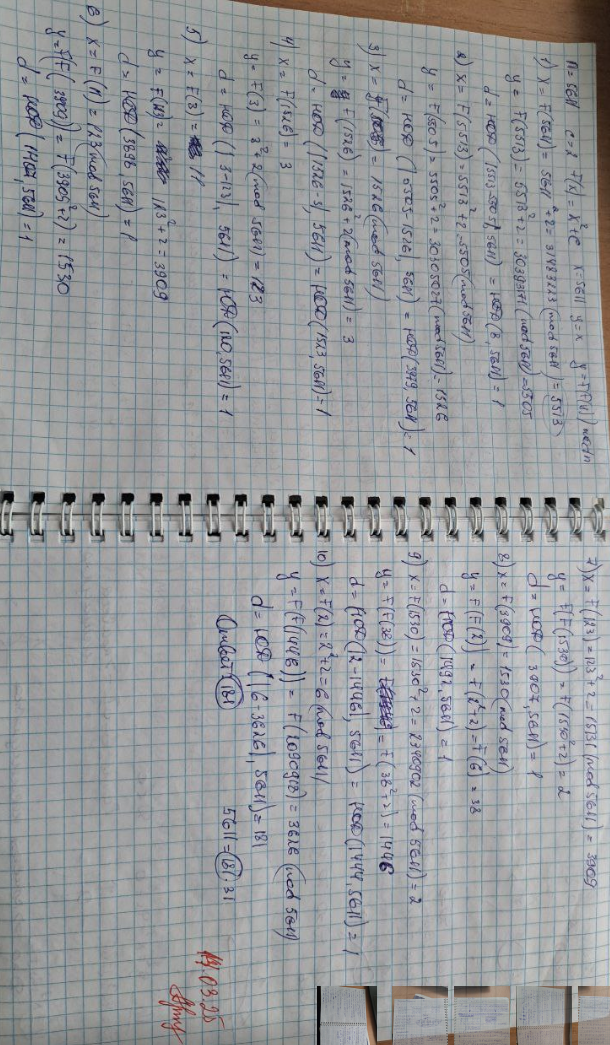 n = 5611 c = 2 F(x) = x² + c x = 5611 y = x y = F(F(y)) mod n
1) x = F(5611) = 5611² + 2 = 31483323 (mod 5611) = 5513
y = F(5513) = 5513² + 2 = 30393171 (mod 5611) = 5505
d = НОД (|5513-5505|, 5611) = НОД (8, 5611) = 1
2) x = F(5513) = 5513² + 2 = 5505 (mod 5611)
y = F(5505) = 5505² + 2 = 30305027 (mod 5611) = 1526
d = НОД (|5505-1526|, 5611) = НОД (3979, 5611) = 1
3) x = F(5505) = 1526 (mod 5611)
y = F(1526) = 1526² + 2 (mod 5611) = 3
d = НОД (|1526-3|, 5611) = НОД (1523, 5611) = 1
4) x = F(1526) = 3
y = F(3) = 3² + 2 (mod 5611) = 123
d = НОД (|3-123|, 5611) = НОД (120, 5611) = 1
5) x = F(3) = 11
y = F(123) = 123² + 2 = 3909
d = НОД (3898, 5611) = 1
6) x = F(11) = 123 (mod 5611)
y = F(F(3909)) = F(3909² + 2) = 1530
d = НОД (1407, 5611) = 1
7) x = F(123) = 123² + 2 = 15131 (mod 5611) = 3909
y = F(F(1530)) = F(1530² + 2) = 2
d = НОД (3907, 5611) = 1
8) x = F(3909) = 1530 (mod 5611)
y = F(F(2)) = F(2² + 2) = F(6) = 38
d = НОД (1492, 5611) = 1
9) x = F(1530) = 1530² + 2 = 2340902 (mod 5611) = 2
y = F(F(38)) = F(38² + 2) = 1446
d = НОД (|2-1446|, 5611) = НОД (1444, 5611) = 1
10) x = F(2) = 2² + 2 = 6 (mod 5611)
y = F(F(1446)) = F(2090918) = 3626 (mod 5611)
d = НОД (|6-3626|, 5611) = 181
Ответ: 181 5611 = 181·31
14.03.25